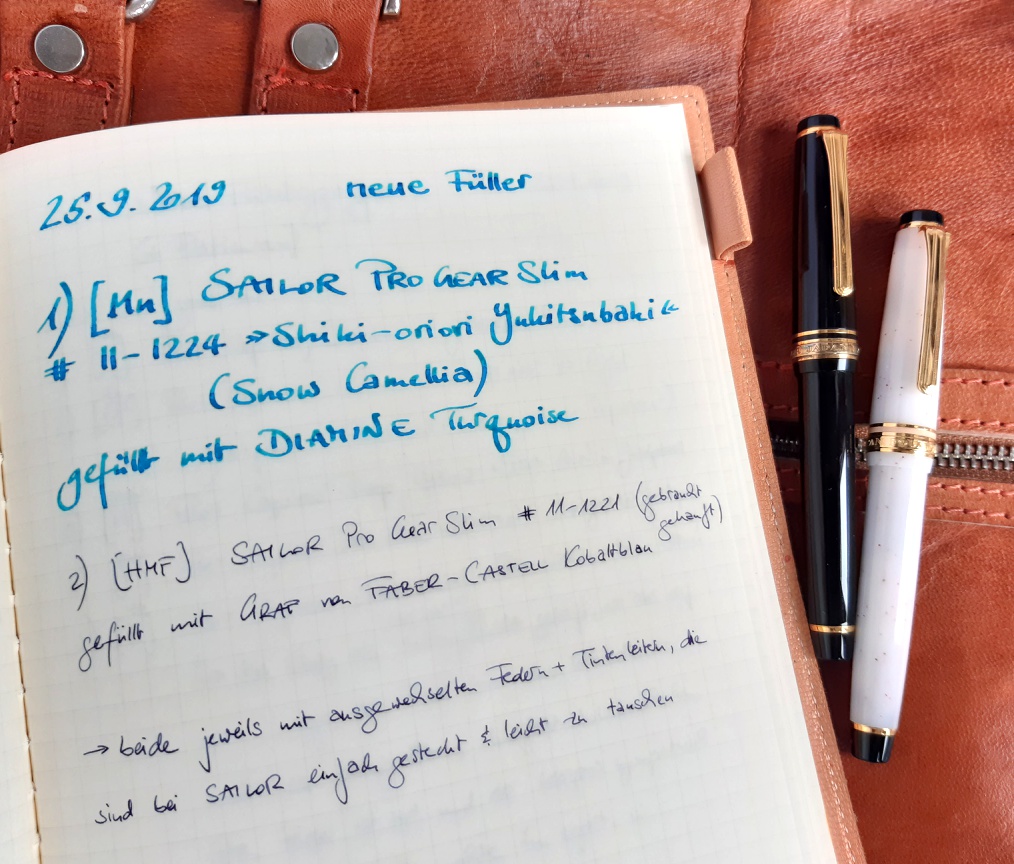 25.9.2019 neue Füller
1) [Mu] SAILOR PRO GEAR Slim
# 11-1224 »Shiki-oriori Yukitsubaki«
(Snow Camellia)
gefüllt mit DIAMINE Turquoise
2) [HMF] SAILOR Pro Gear Slim # 11-1221 (gebraucht
gekauft)
gefüllt mit GRAF von FABER-CASTELL Kobaltblau
→ beide jeweils mit ausgewechselten Federn + Tintenleitern, die
sind bei SAILOR einfach gesteckt & leicht zu tauschen